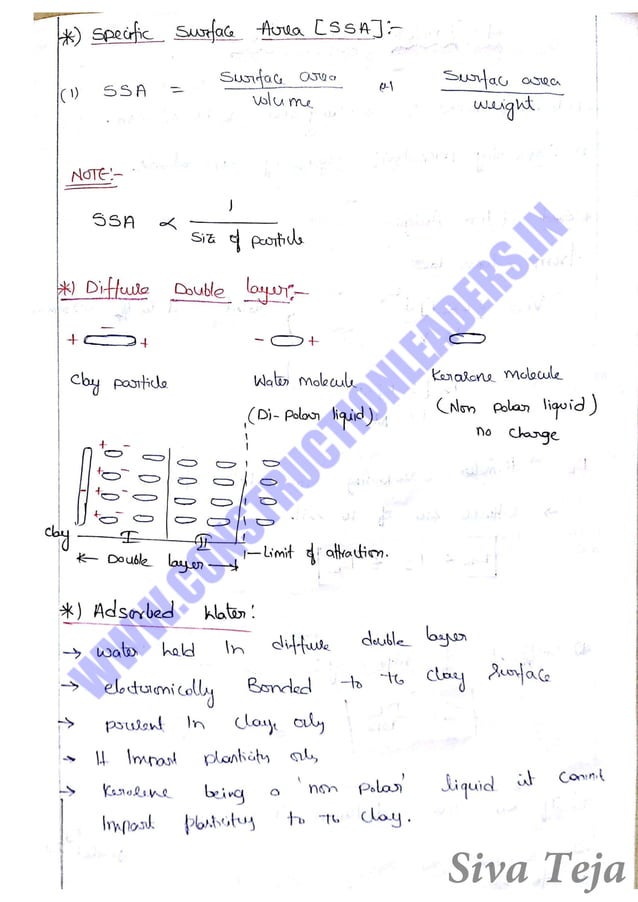 *) Specific Surface Area [SSA]:-
(1) SSA = Surface area / volume or Surfac area / weight
NOTE:-
SSA ∝ 1 / Siz of particle
*) Diffuse Double layer:-
+ − + − + 
Clay particle Water molecule Kerosene molecule
(Di-Polar liquid) (Non polar liquid)
no charge
+ −
+ −
+ −
+ −
Clay I II
← Double layer → Limit of attraction.
*) Adsorbed Water:
→ Water held In diffuse double layer
→ electronically Bonded to the clay surface
→ present In clays only
→ It Impart plasticity only
→ Kerosene being a 'non polar' liquid it cannot
Impart plasticity to the clay.
WWW.CONSTRUCTIONLEADERS.IN
Siva Teja